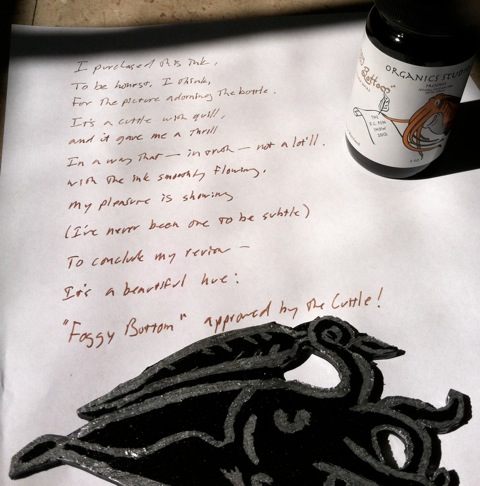 I purchased this ink,
To be honest, I think,
For the picture adorning the bottle.
It's a cuttle with quill,
and it gave me a thrill
In a way that — in truth — not a lot'll.
With the ink smoothly flowing,
My pleasure is showing
(I've never been one to be subtle)
To conclude my review —
It's a beautiful hue:
"Foggy Bottom" approved by the Cuttle!
Bottom"
ORGANICS STUDIO
THE
D.C. PEN
SHOW